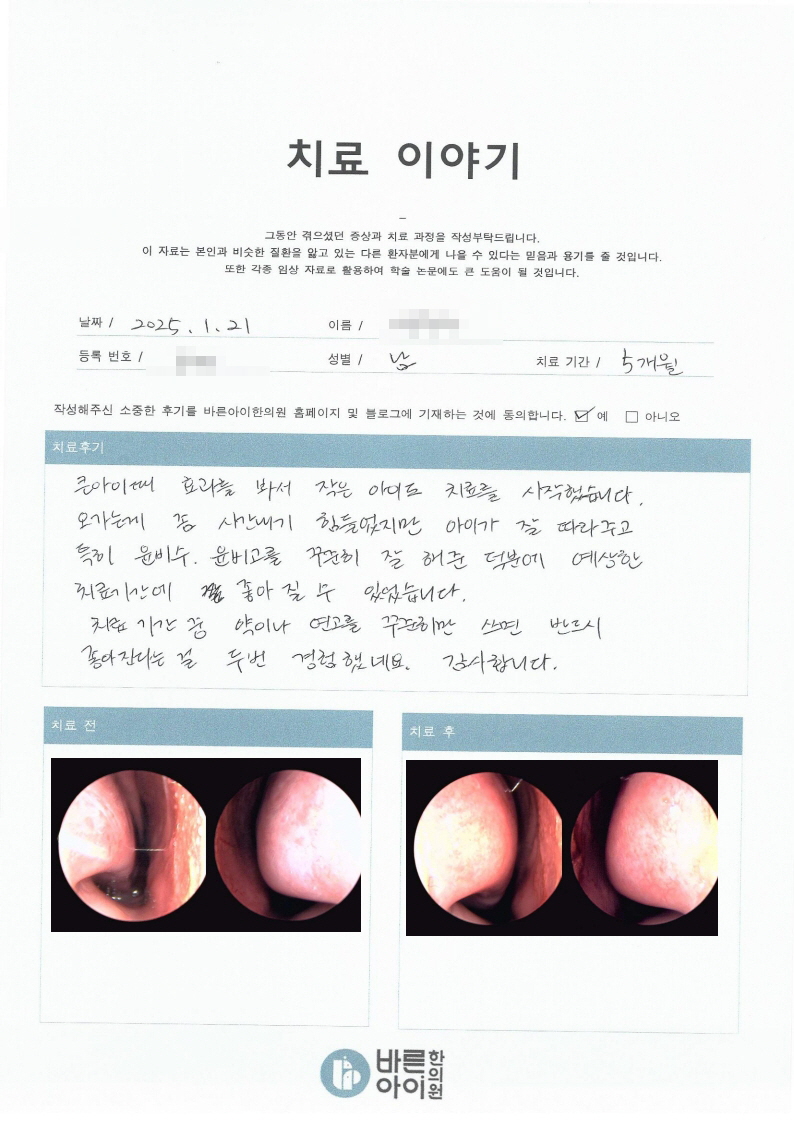 치료 이야기
–
그동안 겪으셨던 증상과 치료 과정을 작성부탁드립니다.
이 자료는 본인과 비슷한 질환을 앓고 있는 다른 환자분에게 나을 수 있다는 믿음과 용기를 줄 것입니다.
또한 각종 임상 자료로 활용하여 학술 논문에도 큰 도움이 될 것입니다.
날짜 / 2025. 1. 21 이름 /
등록 번호 / 성별 / 남 치료 기간 / 5개월
작성해주신 소중한 후기를 바른아이한의원 홈페이지 및 블로그에 기재하는 것에 동의합니다. ☑ 예 □ 아니오
치료후기
큰아이때 효과를 봐서 작은 아이도 치료를 시작했습니다.
오가는게 좀 시간내기 힘들었지만 아이가 잘 따라주고
특히 윤비수. 윤비고를 꾸준히 잘 해준 덕분에 예상한
치료기간에 좋아 질 수 있었습니다.
치료 기간 중 약이나 연고를 꾸준히만 쓰면 반드시
좋아진다는 걸 두번 경험했네요. 감사합니다.
치료 전
치료 후
바른아이한의원